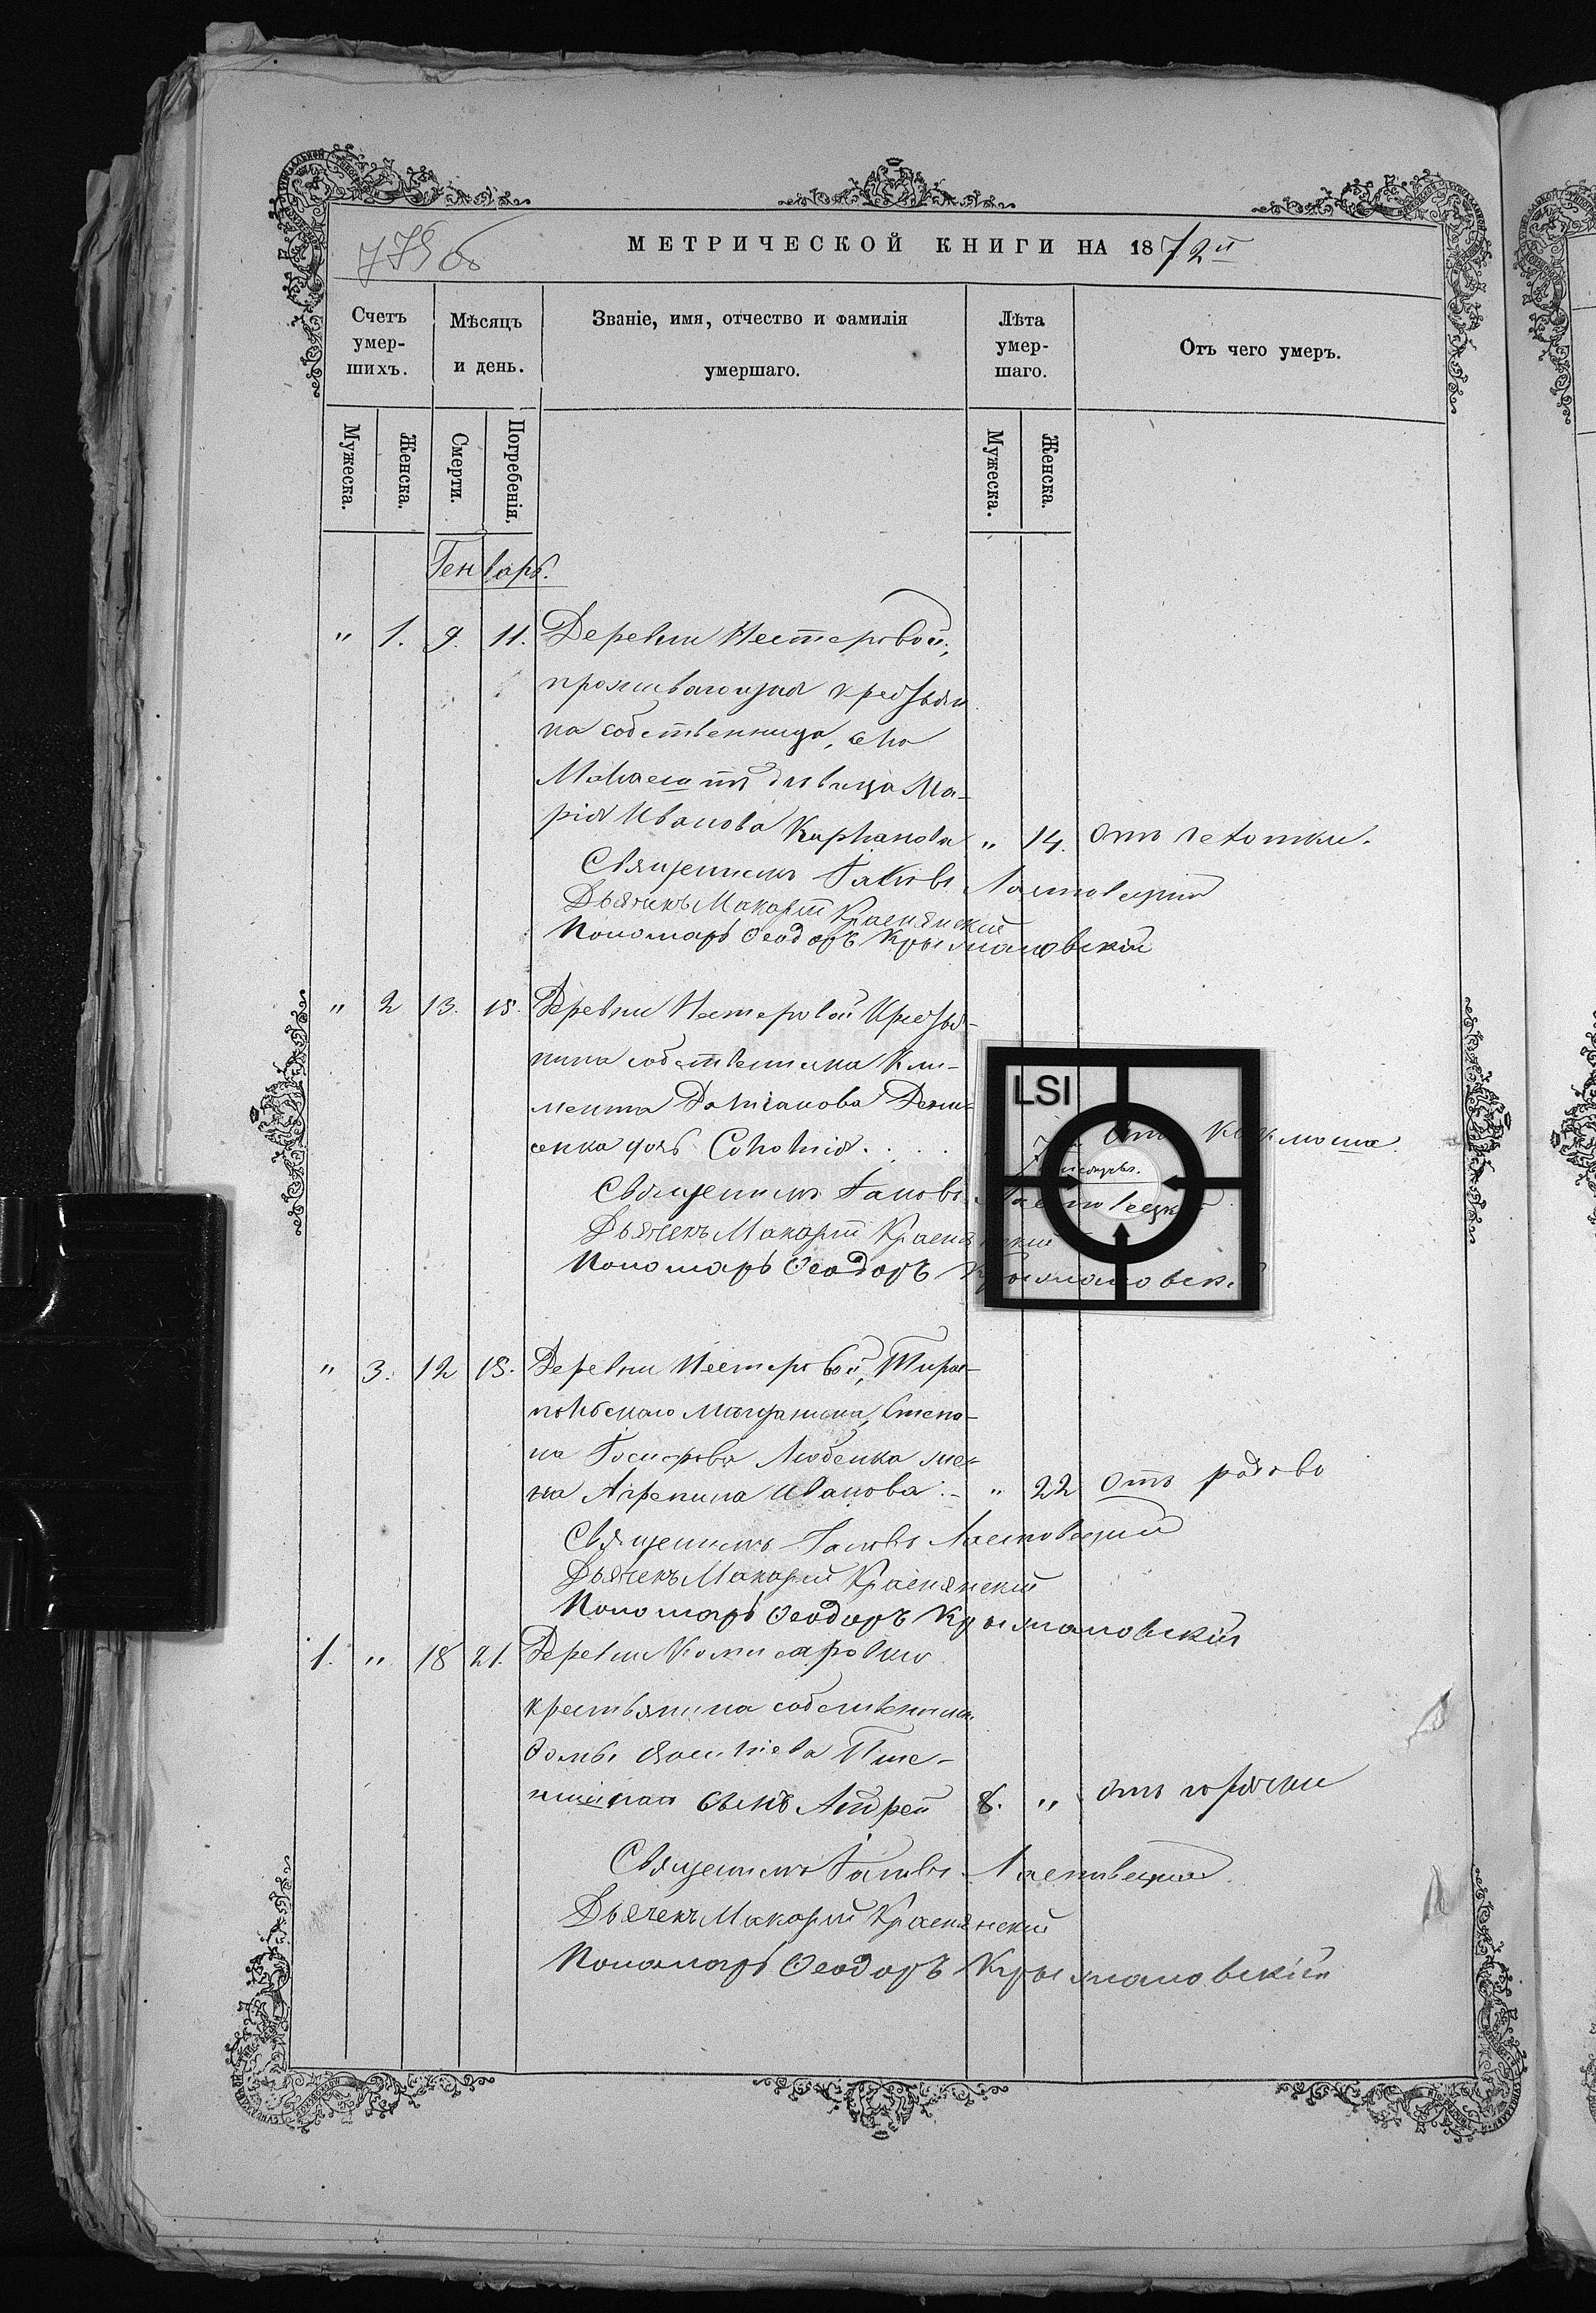 МЕТРИЧЕСКОЙ КНИГИ НА 1872й
Счетъ умершихъ.
Мѣсяцъ и день.
Званіе, имя, отчество и фамилія умершаго.
Лѣта умершаго.
Отъ чего умеръ.
Мужеска. Женска. Смерти. Погребенія. Мужеска. Женска.
Генварь.
" 1. 9. 11. Деревни Нестеровой,
проживающая крестьян
ка собственница, села
дѣвица Ма-
рія Иванова " 14. отъ чахотки.
Священникъ Іаковъ Лястовецкій
Дьячекъ Макарій Краснянскій
Пономарь Ѳеодоръ Крыжановскій
" 2 13. 15. Деревни Нестеровой Крестья-
нина собственника Кли-
мента Даміанова Дени-
сенка дочь Соломія. отъ
мѣсяцевъ.
Священникъ Іаковъ Лястовецкій
Дьячекъ Макарій Краснянскій
Пономарь Ѳеодоръ Крыжановскій
" 3. 12 15. Деревни Нестеровой, Тирас-
польскаго мѣщанина, Степа-
на Любенка же-
на Агрепина Иванова " 22 отъ родовъ
Священникъ Іаковъ Лястовецкій
Дьячекъ Макарій Краснянскій
Пономарь Ѳеодоръ Крыжановскій
1. " 18 21. Деревни Комисаровки
крестьянина собственника
Ѳомы
сынъ Андрей 8. " отъ горячки
Священникъ Іаковъ Лястовецкій
Дьячекъ Макарій Краснянскій
Пономарь Ѳеодоръ Крыжановскій
LSI